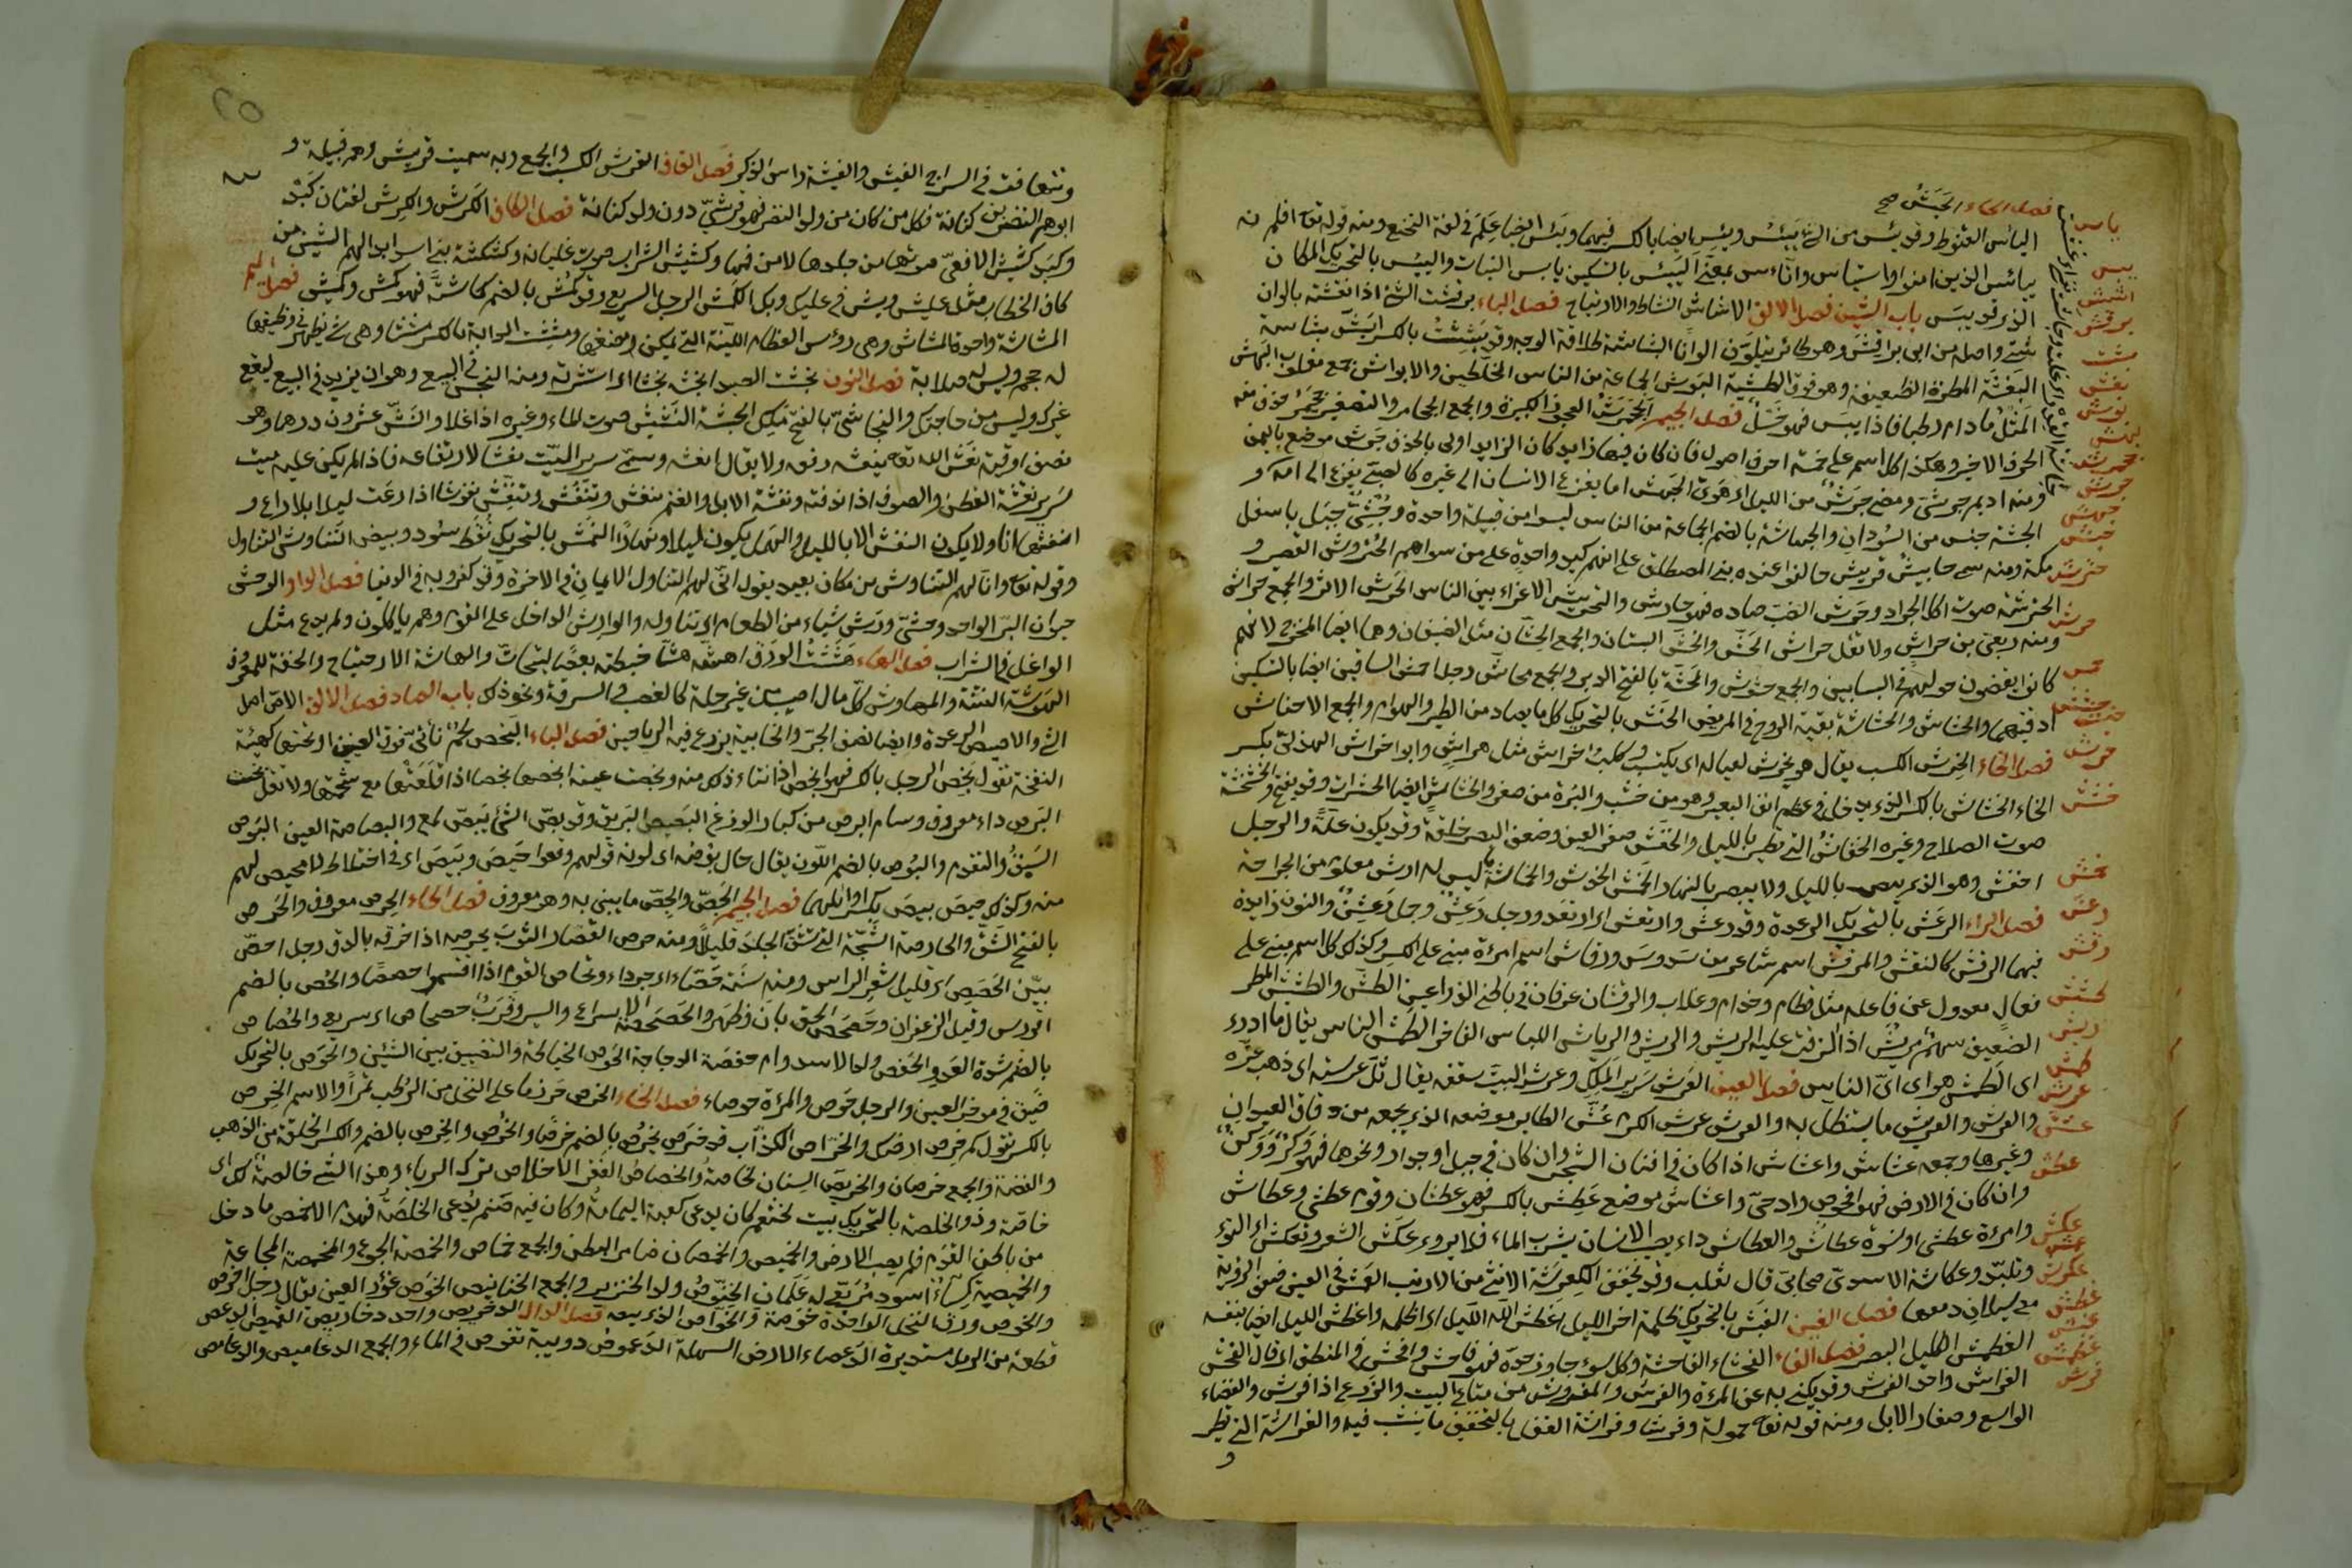 فصل الحاء الحبش صح
ياس اليائس القنوط وقد يئس من الشئ ييئس ويئس ايضا بالكسر فيهما ويئس ايضا علم في لغة النخع ومنه قوله تعا افلم
يبس الذين امنوا بمعنى اليبس بالتسكين يابس النبات واليبس بالتحريك المكان
اشش الذى قد يبس باب الشين فصل الالف الاشاش النشاط والارتياح فصل الباء برقشت الشئ اذا نقشته بالوان
برقش شتى واصله من ابى براقش وهو طائر يتلون الوانا البشاشة طلاقة الوجه وقد بششت بالكسر ابش بشاشة
بغش البغشة المطرة الضعيفة وهو فوق الطشة البوش الجماعة من الناس المختلطين والاوباش جمع مقلوب البهش
المقل ما دام رطبا فاذا يبس فهو خشل فصل الجيم الجحمرش العجوز الكبيرة والجمع الجحامر والتصغير جحيمر حذف منه
الحرف الاخير وهكذا كل اسم على خمسة احرف اصول فان كان فيها زايد كان الزايد اولى بالحذف جرش موضع باليمن
ومنه اديم جرشى ومضى جرش من الليل اى هوى الجهش اما يفزع الانسان الى غيره كالصبى يفزع الى امه و
الحبشة جنس من السودان والحباشة بالضم الجماعة من الناس ليسوا من قبيلة واحدة وحبشى جبل باسفل
مكة ومنه سمى احابيش قريش حالفوا عنده بنى المصطلق على انهم كيد واحدة على من سواهم
الحترشة صوت اكل الجراد وحرش الضب صاده فهو حارش والتحريش الاغراء بين الناس الحرش الاثر والجمع حراش
ومنه ربعى بن حراش ولا تقل خراش الحش والحش البستان والجمع الحشان مثل الضيفان وهما ايضا المخرج لانهم
كانوا يقضون حوائجهم في البساتين والجمع حشوش والمحشة بالفتح الدبر والجمع محاش رجل احمش الساقين ايضا بالتسكين
دقيقهما والحشاش والحشاشة بقية الروح في المريض الحنش بالتحريك كل ما يصاد من الطير والهوام والجمع الاحناش
فصل الخاء الخرش الكسب يقال هو يخرش لعياله اى يكتسب وكلب خراش مثل هراش وابو خراش الهذلى بكسر
الخاء الخشاش بالكسر الذى يدخل في عظم انف البعير وهو من خشب والبرة من صفر والخشاش ايضا الحشرات وقد يفتح والخشخشة
صوت السلاح وغيره الخفاش التى تطير بالليل والخفش صغر العين وضعف البصر خلقة وقد يكون علة والرجل
اخفش وهو الذى يبصر بالليل ولا يبصر بالنهار الخمش الخدوش والخماشة ما ليس له ارش معلوم من الجراحة
فصل الراء الرعش بالتحريك الرعدة وقد رعش وارتعش اى ارتعد ورجل رعش وجمل رعشن والنون زايدة
فيهما الرقش كالنقش والمرقش اسم شاعر من سدوس ورقاش اسم امرأة مبنى على الكسر وكذلك كل اسم مبنى على
فعال معدول عن فاعله مثل قطام وحذام وغلاب
الضعيف سهم مريش اذا الزقت عليه الريش والريش والرياش اللباس الفاخر الطمش الناس يقال ما ادرى
اى الطمش هو اى اى الناس فصل العين العرش سرير الملك وعرش البيت سقفه يقال ثل عرشه اى ذهب عزه
والعرش والعريش ما يستظل به والعرش عرش الكرم عش الطاير موضعه الذى يجمعه من دقاق العيدان
وغيرها وجمعه عشاش واعشاش اذا كان في افنان الشجر وان كان في جبل او جدار ونحوها فهو وكر ووكن
وان كان في الارض فهو افحوص وادحى واعشاش موضع عطش بالكسر فهو عطشان وقوم عطشى وعطاش
وامرءة عطشى ونسوة عطاش والعطاش داء يصيب الانسان يشرب الماء فلا يروى عكش الشعر وتعكش اى التوى
وتلبد وعكاشة الاسدى صحابى قال ثعلب وقد يخفف العكرشة الانثى من الارنب العمش في العين ضعف الرؤية
مع سيلان دمعها فصل الغين الغبش بالتحريك ظلمة اخر الليل اغطش الله الليل اى اظلمه واغطش الليل ايضا بنفسه
الغطمش الكليل البصر فصل الفاء الفحشاء الفاحشة وكل سوء جاوز حده فهو فاحش وافحش في المنطق اى قال الفحش
الفراش واحد الفرش وقد يكنى به عن المرءة والفرش والمفروش من متاع البيت والزرع اذا فرش والفضاء
الواسع وصغار الابل ومنه قوله تعا حمولة وفرشا وفراشة القفل بالتخفيف ما ينشب فيه والفراشة التى تطير
و
٢٥
وتتهافت في السراج الفيش والفيشة راس الذكر فصل القاف القرش الكسب والجمع وبه سميت قريش وهم قبيلة و
ابوهم النضر بن كنانة فكل من كان من ولد النضر فهو قرشى دون ولد كنانة فصل الكاف الكرش والكرش لغتان ككبد
وكبد كشيش الافعى صوتها من جلدها لا من فمها وكشيش الشراب صوت غليانه وكشكشة بنى اسد ابدالهم الشين من
كاف الخطاب مثل عليش وبش في عليك وبك الكمش الرجل السريع وقد كمش بالضم كماشة فهو كمش وكميش فصل الميم
المشاشة واحدة المشاش وهى رؤس العظام اللينة التى يمكن مضغها ومششت الدابة بالكسر مششا وهى شئ يظهر في وظيفها
له حجم وليس له صلابة فصل النون نجشت الصيد انجشه نجشا اى استثرته ومنه النجش في البيع وهو ان يزيد في البيع ليقع
غيرك وليس من حاجتك والنجاشى بالفتح ملك الحبشة النشيش صوت الماء وغيره اذا غلا والنش عشرون درهما وهو
نصف اوقية نعش الله تعه ينعشه رفعه ولا يقال انعشه وسمى سرير الميت نعشا لارتفاعه فاذا لم يكن عليه ميت
سرير نفشت القطن والصوف اذا ندفته ونفشت الابل والغنم تنفش وتنفش نفوشا اذا رعت ليلا بلا راع و
انفشتها انا ولا يكون النفش الا بالليل والهمل يكون ليلا ونهارا النمش بالتحريك نقط سود وبيض التناوش التناول
وقوله تعا وانى لهم التناوش من مكان بعيد يقول انى لهم تناول الايمان في الاخرة وقد كفروا به في الدنيا فصل الواو الوحش
حيوان البر الواحد وحشى ورش شياء من الطعام اى تناوله والوارش الداخل على القوم وهم ياكلون ولم يدع مثل
الواغل في الشراب فصل الهاء هششت الورق اهشه هشا خبطته بعصا ليتحات والهاشة الارتياح والخفة للمعروف
الهوشة الفتنة والمهاوش كل مال اصيب من غير حله كالغصب والسرقة ونحو ذلك باب الصاد فصل الالف الاص اصل
الشئ والاصيص الرعدة وايضا نصف الجر والخابية يزرع فيه الرياحين فصل الباء البخص لحم ناتئ فوق العينين او تحتها كهيئة
النفخة تقول بخص الرجل بالكسر فهو ابخص اذا نتاء ذلك منه وبخصت عينه ابخصها بخصا اذا قلعتها مع شحمتها ولا تقل بخست
البرص داء معروف وسام ابرص من كبار الوزغ البصيص البريق وقد بص الشئ يبص لمع والبصاصة العين البوص
السبق والتقدم والبوص بالضم اللون يقال حال بوصه اى لونه قولهم وقعوا في حيص وبيص اى في اختلاط لا محيص لهم
منه وكذلك حيص بيص بكسر اوائلهما فصل الجيم الجص والجص ما يبنى به وهو معروف فصل الحاء الحرص معروف والحرص
بالفتح الشق والحارصة الشجة التى تشق الجلد قليلا ومنه حرص القصار الثوب يحرصه اذا خرقه بالدق رجل احص
بين الحصص اى قليل شعر الراس ومنه سنة حصاء اى جرداء وتحاص القوم اذا اقتسموا حصصا والحص بالضم
الورس وقيل الزعفران وحصحص الحق بان وظهر والحصحصة الاسراع والسير وقرب حصحاص اى سريع والحصاص
بالضم شدة العدو والحفص ولد الاسد وام حفصة الدجاجة الحوص الخياطة والتضييق بين الشيئين والحوص بالتحريك
ضيق في مؤخر العين والرجل احوص والمرءة حوصاء فصل الخاء الخرص حرز ما على النخل من الرطب تمرا والاسم الخرص
بالكسر تقول كم خرص ارضك والخراص الكذاب وقد خرص يخرص بالضم خرصا والخرص والخرص بالضم والكسر الحلقة من الذهب
والفضة والجمع خرصان والخريص السنان خاصة والخصاصة الفقر الاخلاص ترك الرياء وهذا الشئ خالصة لك اى
خاصة وذو الخلصة بالتحريك بيت لخثعم كان يدعى كعبة اليمامة وكان فيه صنم يدعى الخلصة فهدم الاخمص ما دخل
من باطن القدم فلم يصب الارض والخميص والخمصان ضامر البطن والجمع خماص والخمصة الجوع والمخمصة المجاعة
والخميصة كساء اسود مربع له علمان الخنوص ولد الخنزير والجمع الخنانيص الخوص غؤر العين يقال رجل اخوص
والخوص ورق النخل الواحدة خوصة والخواص الذى يبيعه فصل الدال الدخريص واحد دخاريص القميص الدعص
قطعة من الرمل مستديرة الدعصاء الارض السهلة الدعموص دويبة تغوص في الماء والجمع الدعاميص والدعامص